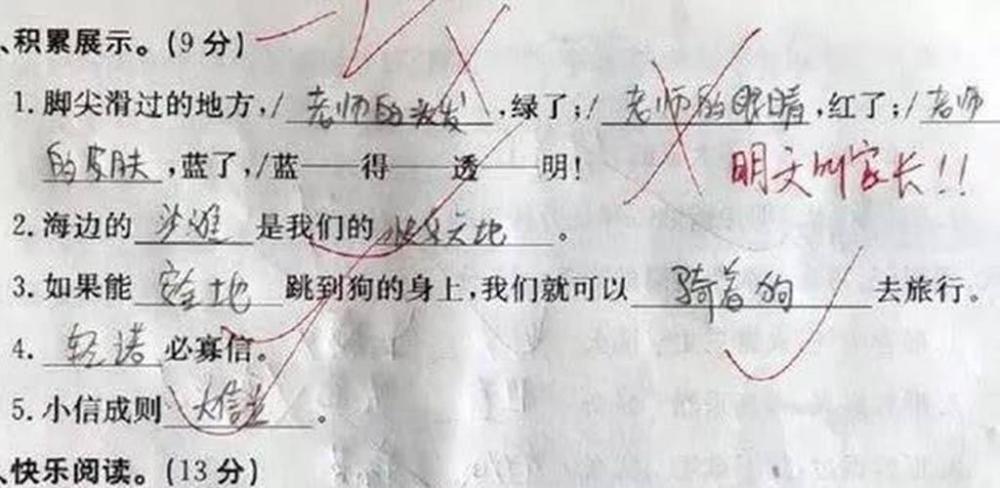 、积累展示。(9 分)
1. 脚尖滑过的地方,/老师的头发,绿了;/老师的眼睛,红了;/老师
的皮肤,蓝了,/蓝——得——透——明!
明天叫家长!!
2. 海边的沙滩是我们的快乐天地。
3. 如果能安全地跳到狗的身上,我们就可以骑着狗去旅行。
4. 轻诺必寡信。
5. 小信成则大信立。
、快乐阅读。(13 分)